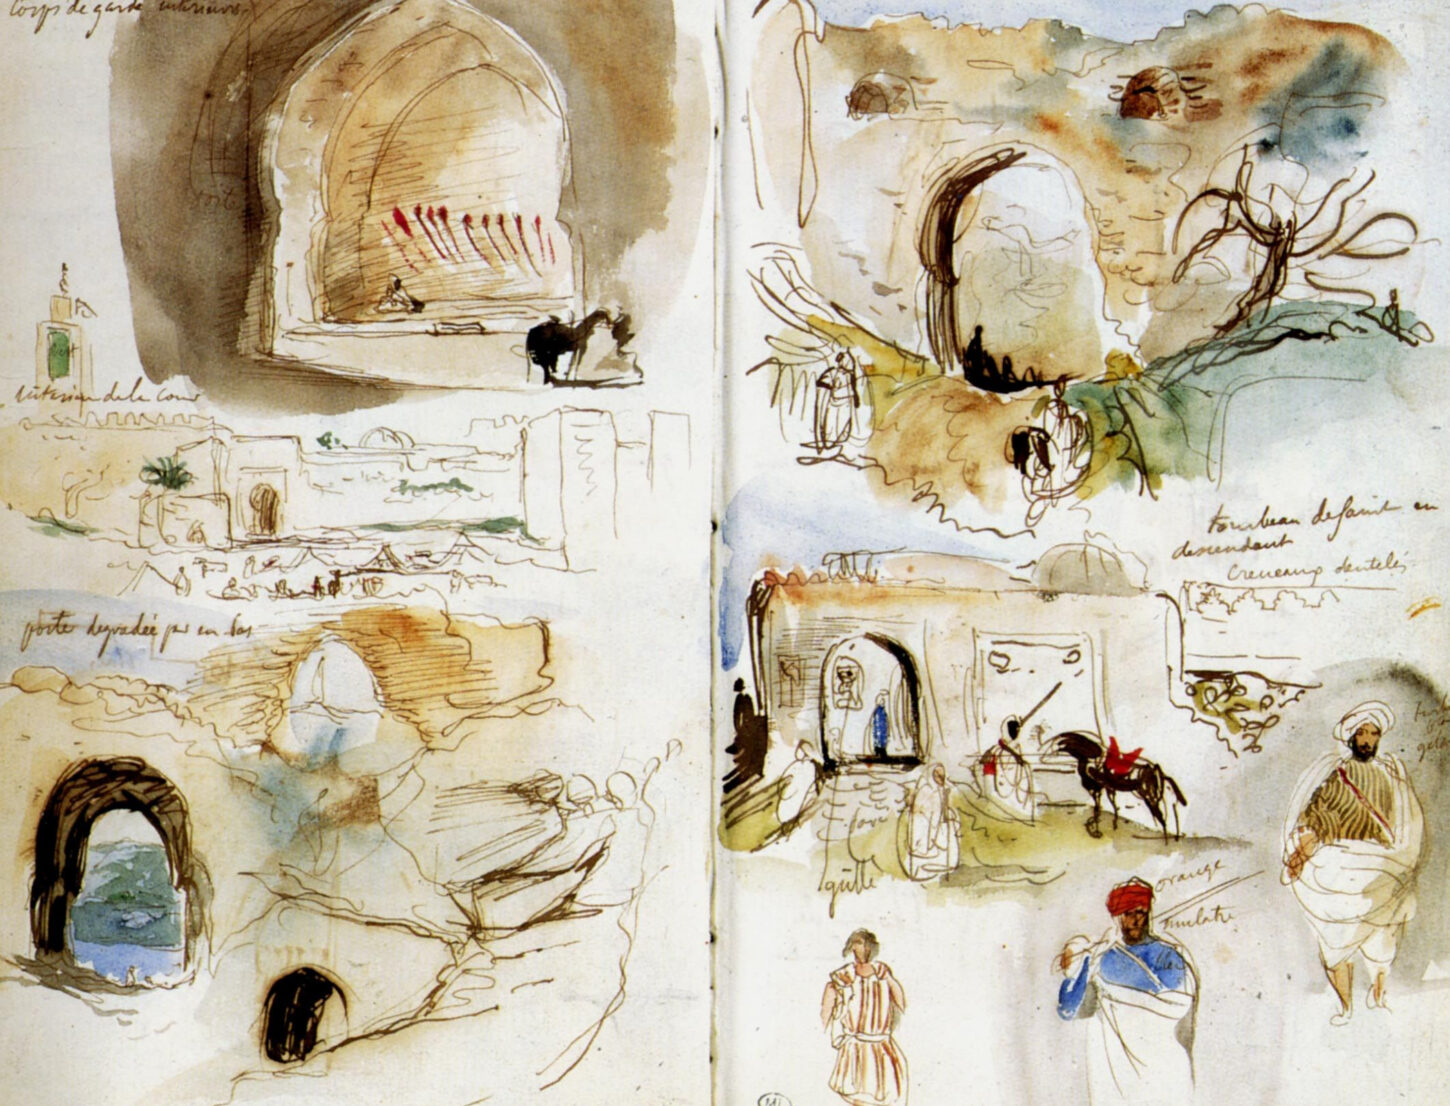 corps de garde intérieurs.
toit
vert
intérieur de la Cour
porte degradée par en bas
tombeau de saint en
descendant
creneaux dentelés
pavé
orange
mulatre
bleu